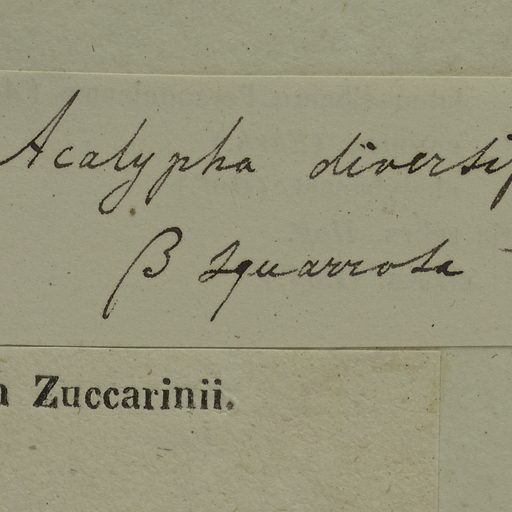 Acalypha diversif
β squarrosa
n Zuccarinii.